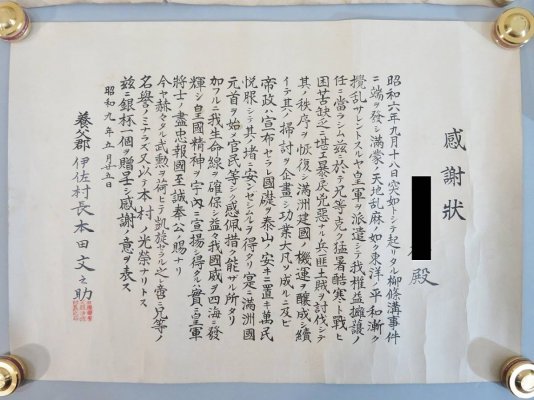 感謝狀
殿
昭和六年九月十八日突如トシテ起リタル柳條溝事件
ニ端ヲ發シ滿蒙ノ天地乱麻ノ如ク東洋ノ平和漸ク
攪乱サレントスルヤ皇軍ヲ派遣シテ我權益擁護ノ
任ニ當ラシム茲ニ於テ兄等克ク猛暑酷寒ト戰ヒ
困苦缺乏ニ堪エ暴戾兇惡ナル兵匪土賊ヲ討伐シテ
其ノ秩序ヲ恢復シ滿洲建國ノ機運ヲ釀成シ續
イテ其ノ掃討ヲ企畫シ功業大凡ソ成ルニ及ビ
帝政ハ宣布セラレ國礎ヲ泰山ノ安キニ置キ萬民
悅服シテ其ノ堵ニ安ンゼシムルヲ得タリ寔ニ滿洲國
元首ヲ始メ官民等シク感佩措ク能ザル所タリ
加フルニ我生命線ヲ確保シ益々我國威ヲ四海ニ發
輝シ皇國精神ヲ宇內ニ宣揚シ得タルハ實ニ皇軍
將士ノ盡忠報國至誠奉公ノ賜ナリ
今ヤ赫々タル武勲ヲ荷ヒテ凱旋サル之レ啻ニ兄等ノ
名譽ノミナラズ又以テ本村ノ光榮ナリトス
茲ニ銀杯一個ヲ贈呈シ感謝ノ意ヲ表ス
昭和九年五月廿五日
養父郡伊佐村長本田文之助